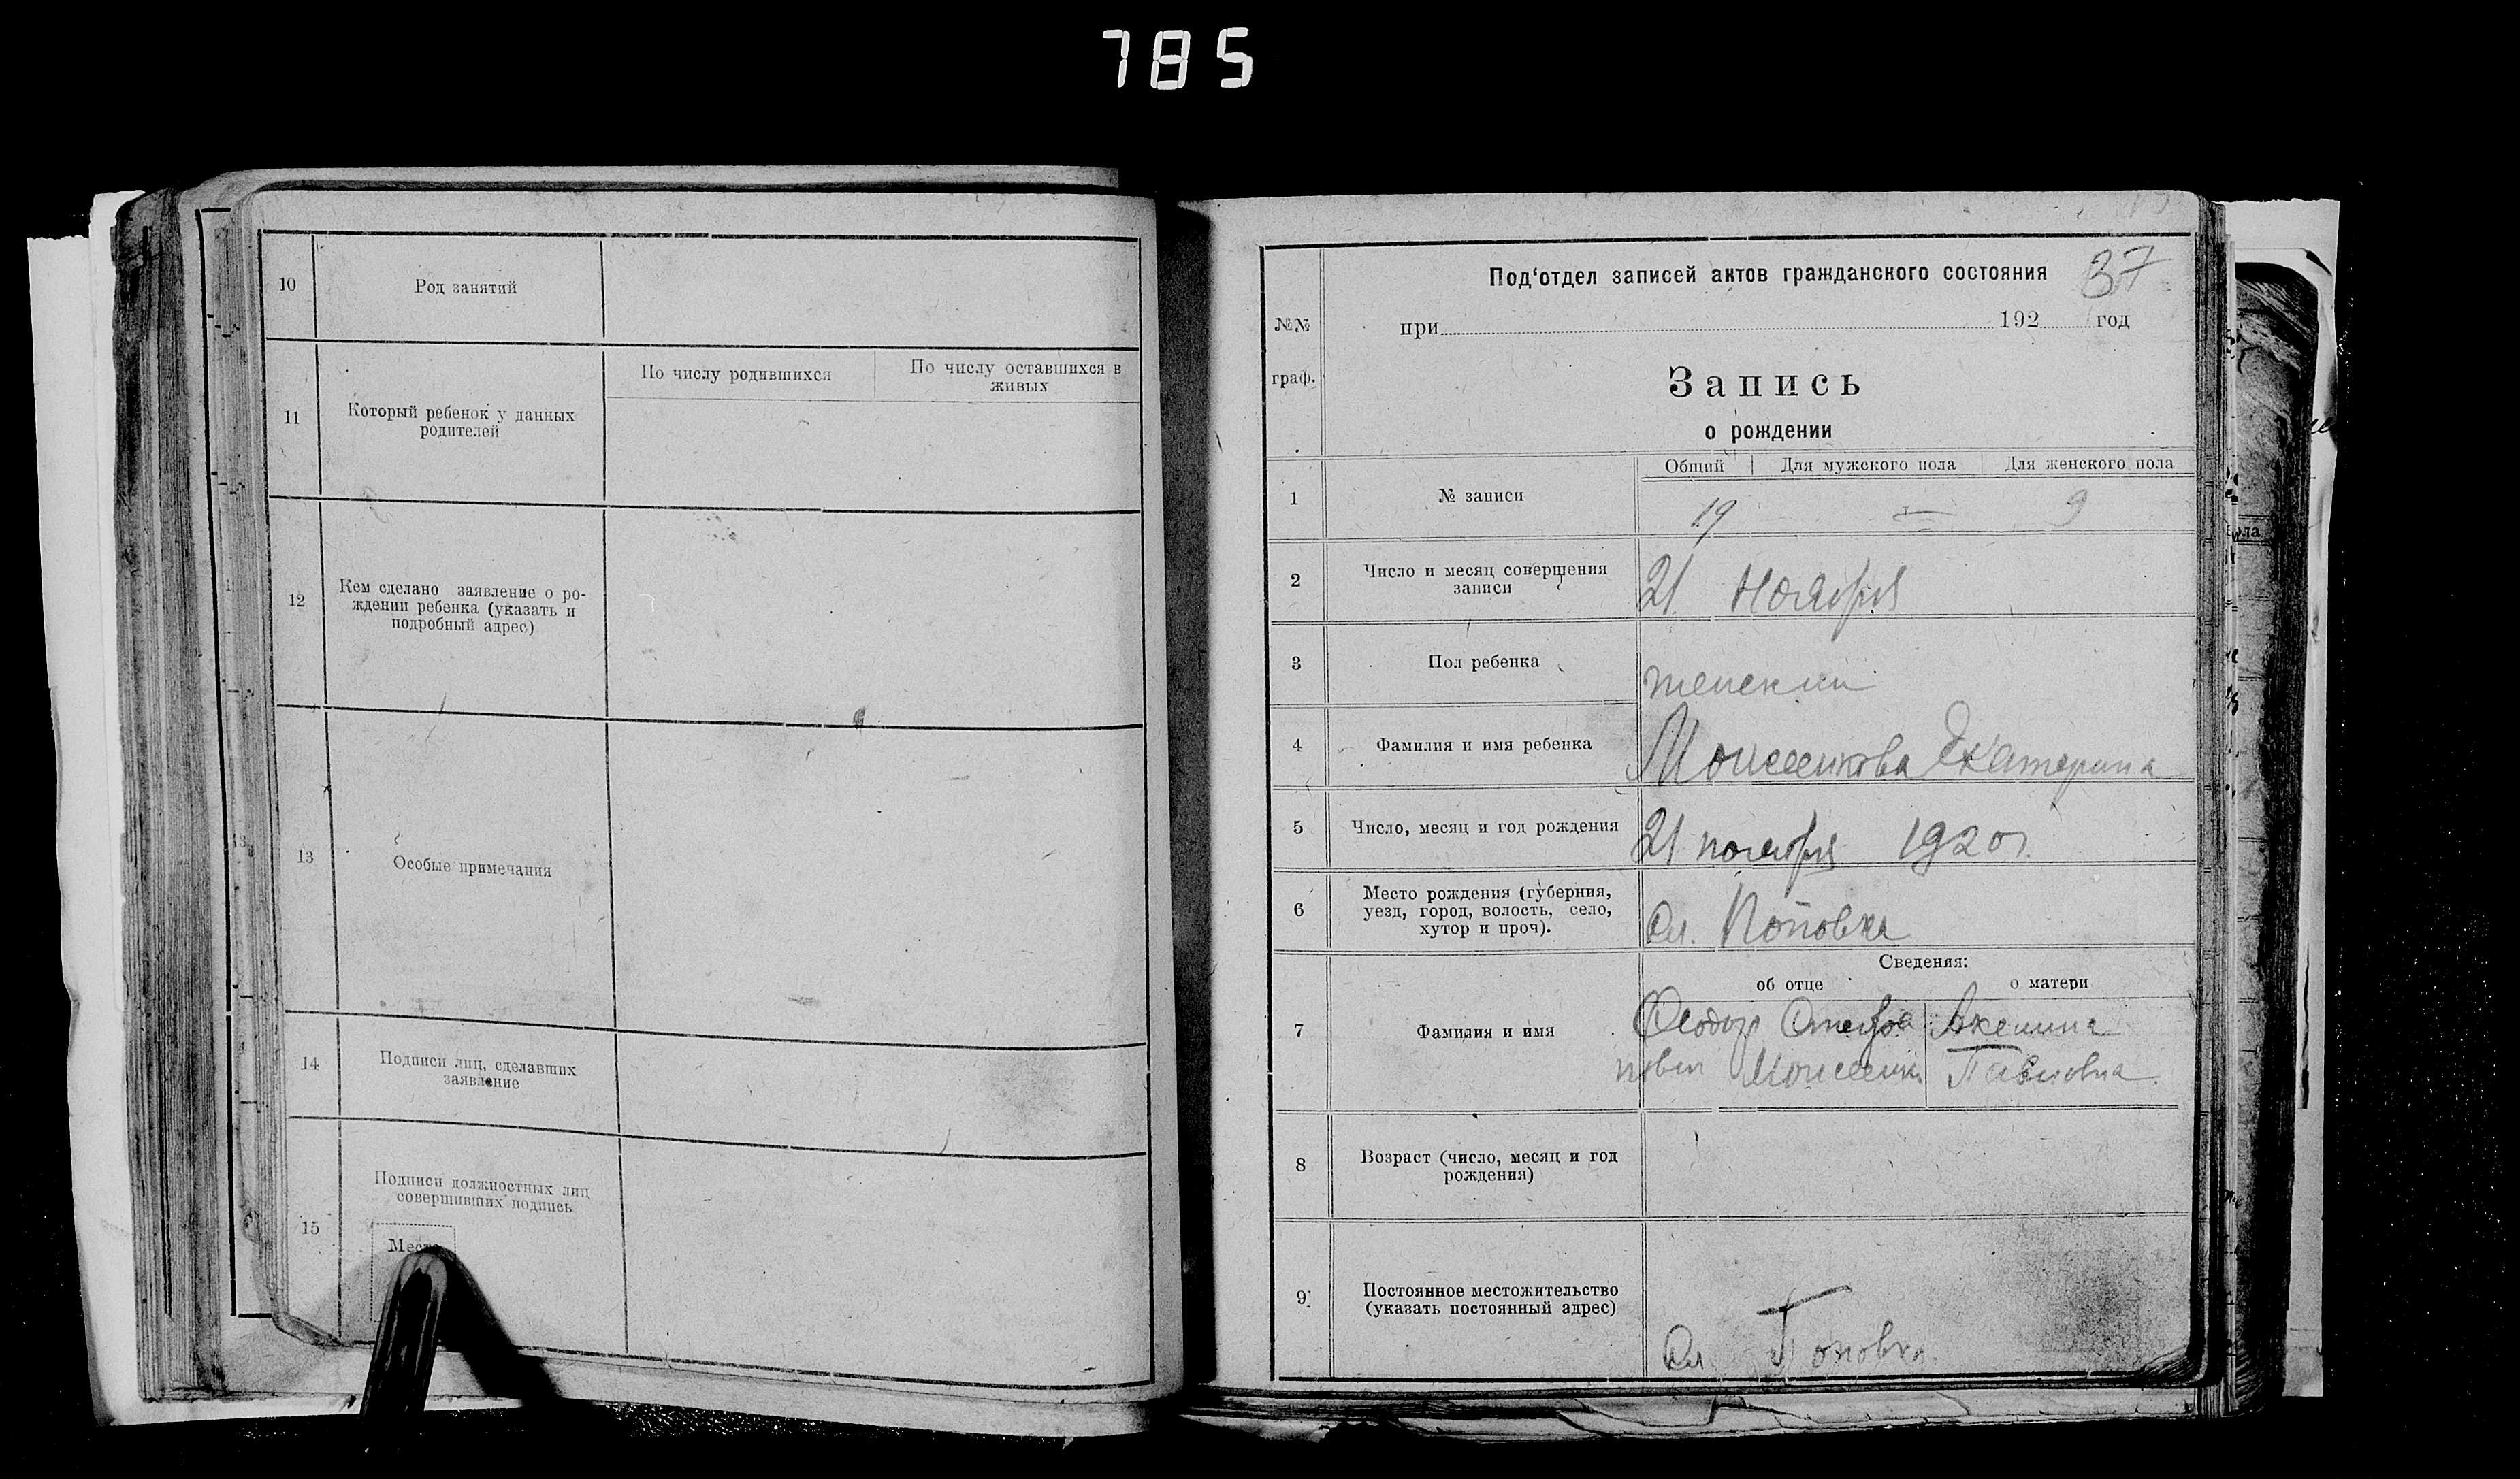 785
10
Род занятий
11
Который ребенок у данных
родителей
По числу родившихся
По числу оставшихся в
живых
12
Кем сделано заявление о ро-
ждении ребенка (указать и
подробный адрес)
13
Особые примечания
14
Подписи лиц, сделавших
заявление
15
Подписи должностных лиц
совершивших подпись
37
№№
граф.
Под'отдел записей актов гражданского состояния
при 192 год
Запись
о рождении
Общий Для мужского пола Для женского пола
1
№ записи
19 — 9
2
Число и месяц совершения
записи
21 Ноября
3
Пол ребенка
женский
4
Фамилия и имя ребенка
Моисеенкова Екатерина
5
Число, месяц и год рождения
21 ноября 1920 г.
6
Место рождения (губерния,
уезд, город, волость, село,
хутор и проч).
Сл. Поповка
Сведения:
об отце о матери
7
Фамилия и имя
Феодор
Моисеенк.
Акелина
Павловна
8
Возраст (число, месяц и год
рождения)
9
Постоянное местожительство
(указать постоянный адрес)
Сл. Поповка